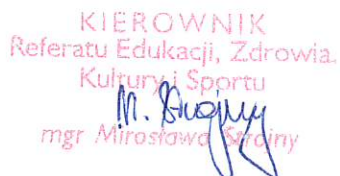 KIEROWNIK
Referatu Edukacji, Zdrowia,
Kultury i Sportu
M. Strojny
mgr Mirosława Strojny